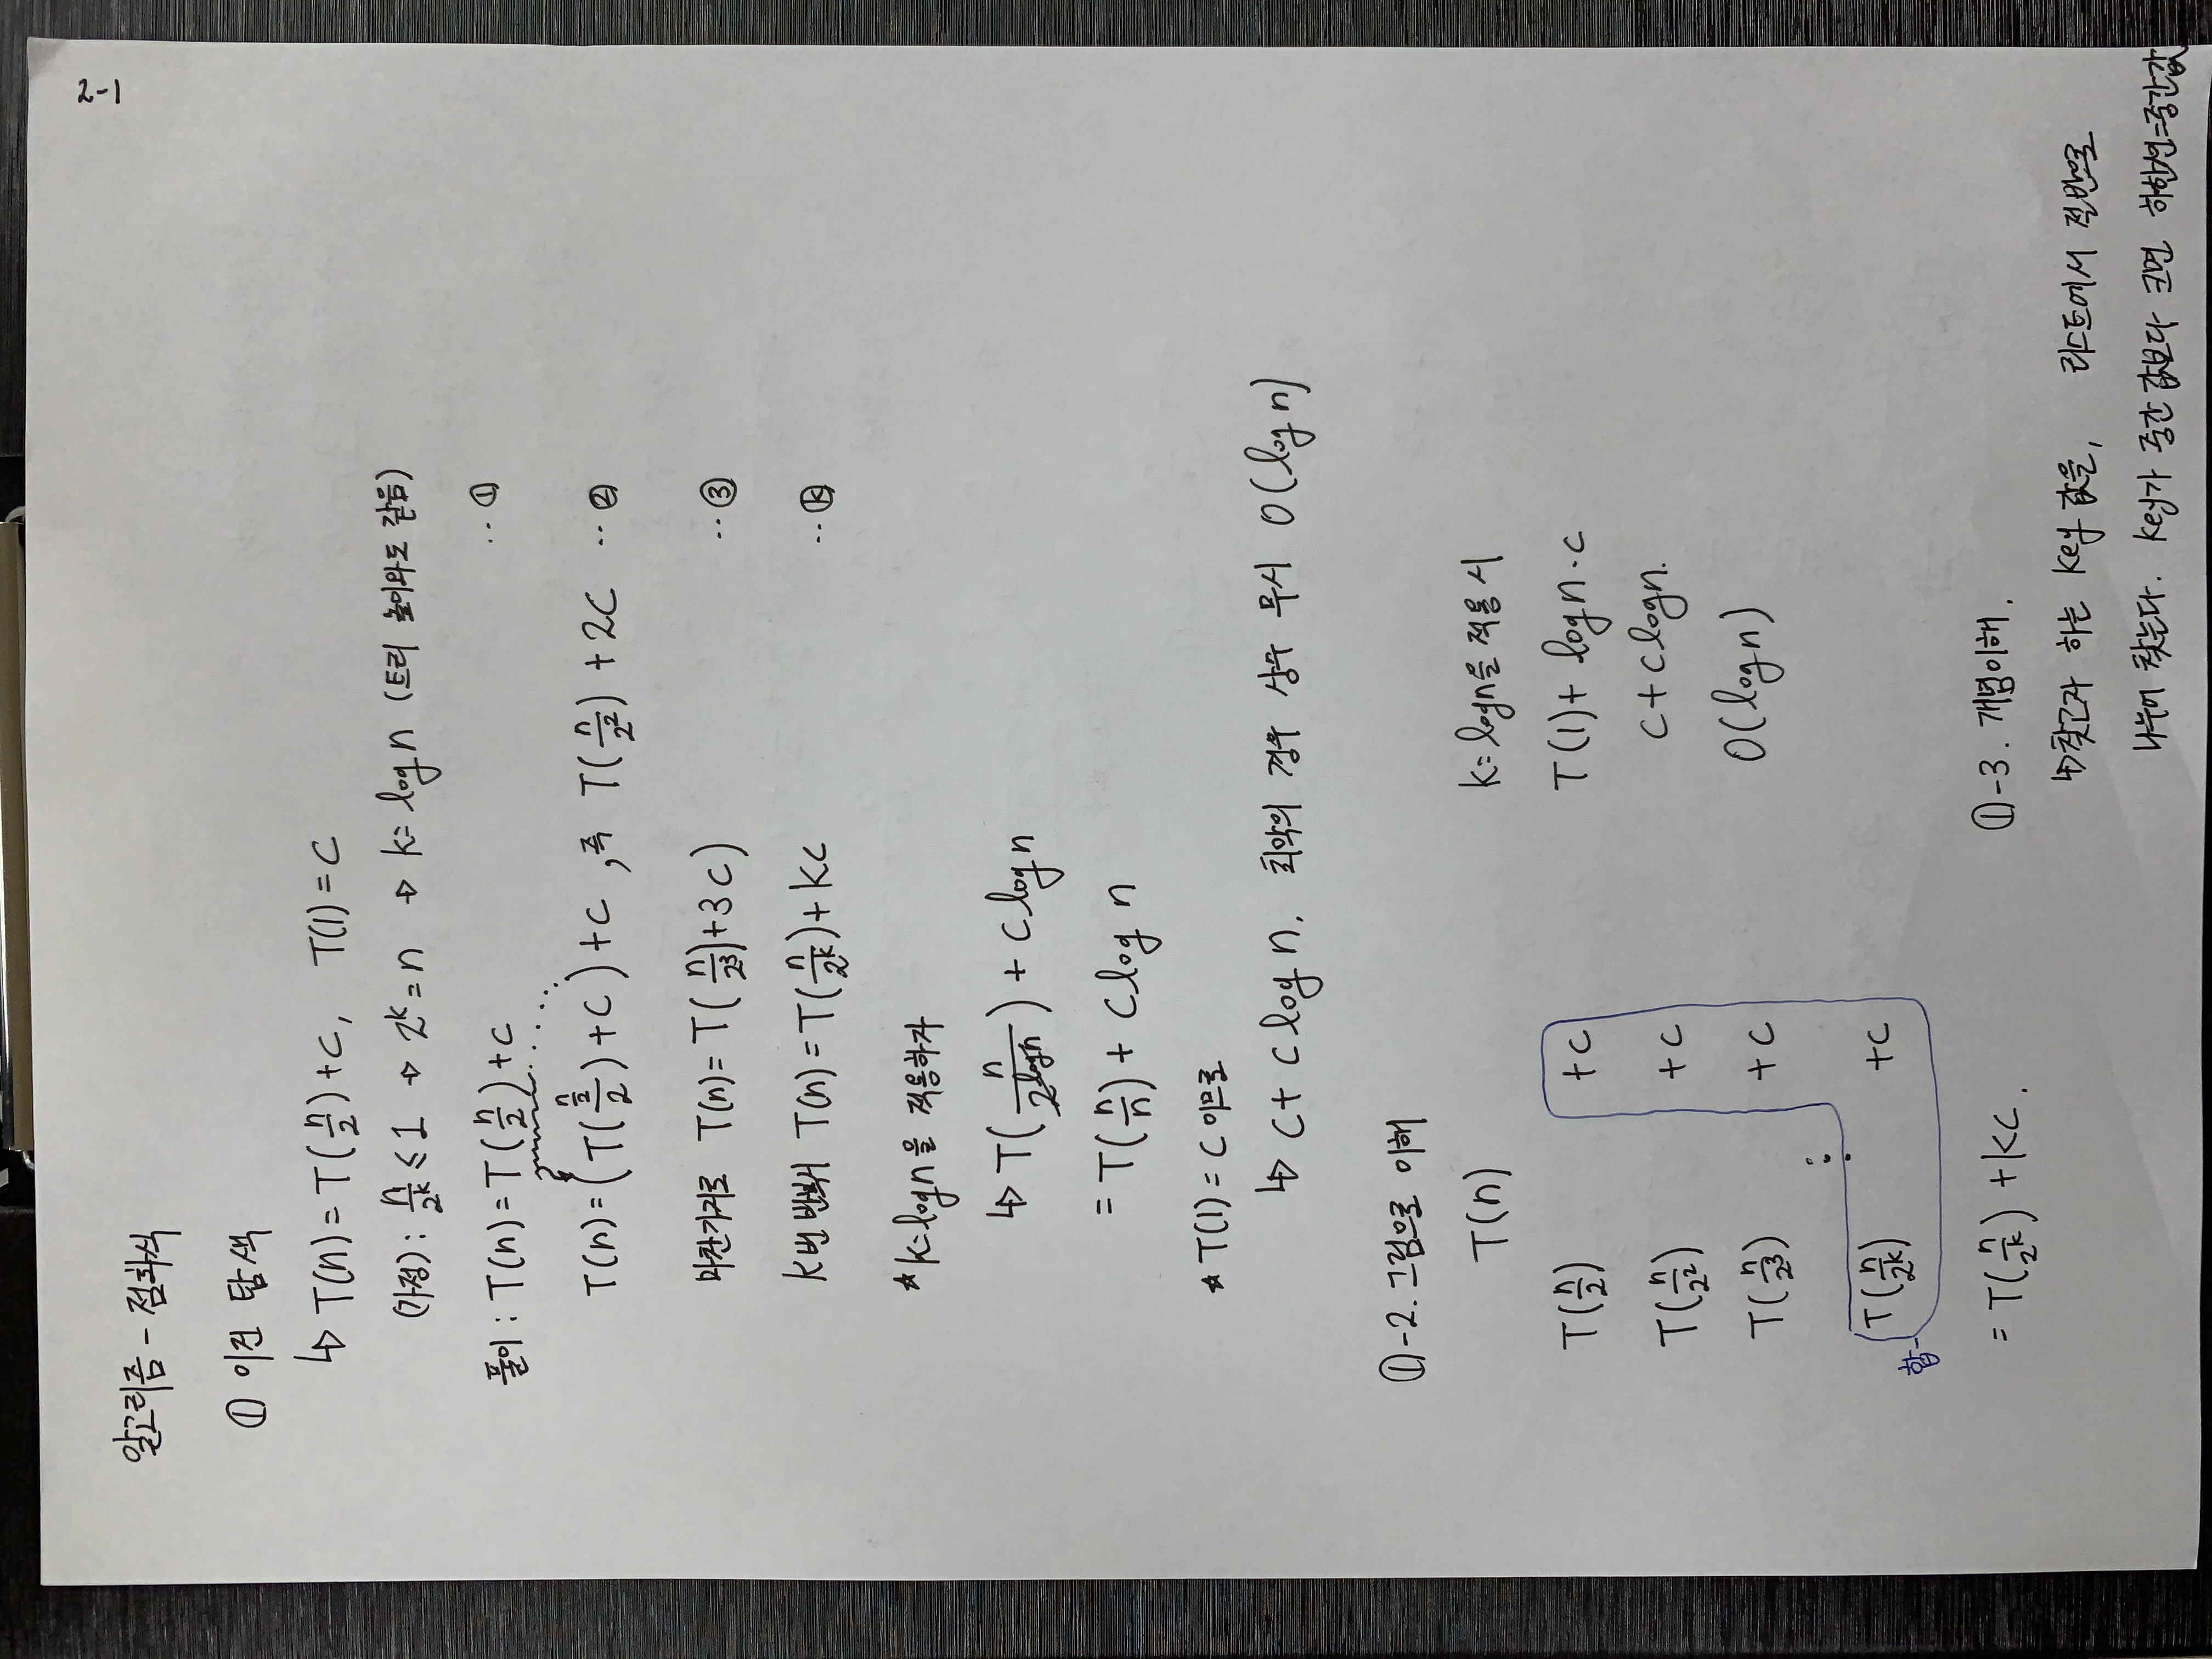 2-1
알고리즘 - 점화식
① 이진 탐색
↳ T(n) = T(n/2) + c, T(1) = C
(가정) : n/2^k ≤ 1 → 2^k = n → k = log n (트리 높이와도 같음)
풀이 : T(n) = T(n/2) + c ‥ ①
T(n) = (T((n/2)/2) + C) + c , 즉 T(n/2²) + 2C ‥ ②
마찬가지로 T(n) = T(n/2³) + 3C) ‥ ③
K번 반복시 T(n) = T(n/2^k) + KC ‥ ⓚ
☆ K = log n을 적용하자
↳ T(n/2^log n) + C log n
= T(n/n) + C log n
☆ T(1) = C 이므로
↳ C + C log n. 최악의 경우 상수 무시 O(log n)
①-2. 그림으로 이해
T(n)
T(n/2) +C
T(n/2²) +C
T(n/2³) +C
⋮
T(n/2^k) +C
합-
= T(n/2^k) + KC.
K = log n을 적용 시
T(1) + log n · c
C + C log n.
O(log n)
①-3. 개념이해.
↳ 찾고자 하는 Key 값을, 리스트에서 절반으로
나누어 찾는다. Key가 중간 값보다 크면 하한선=중간값